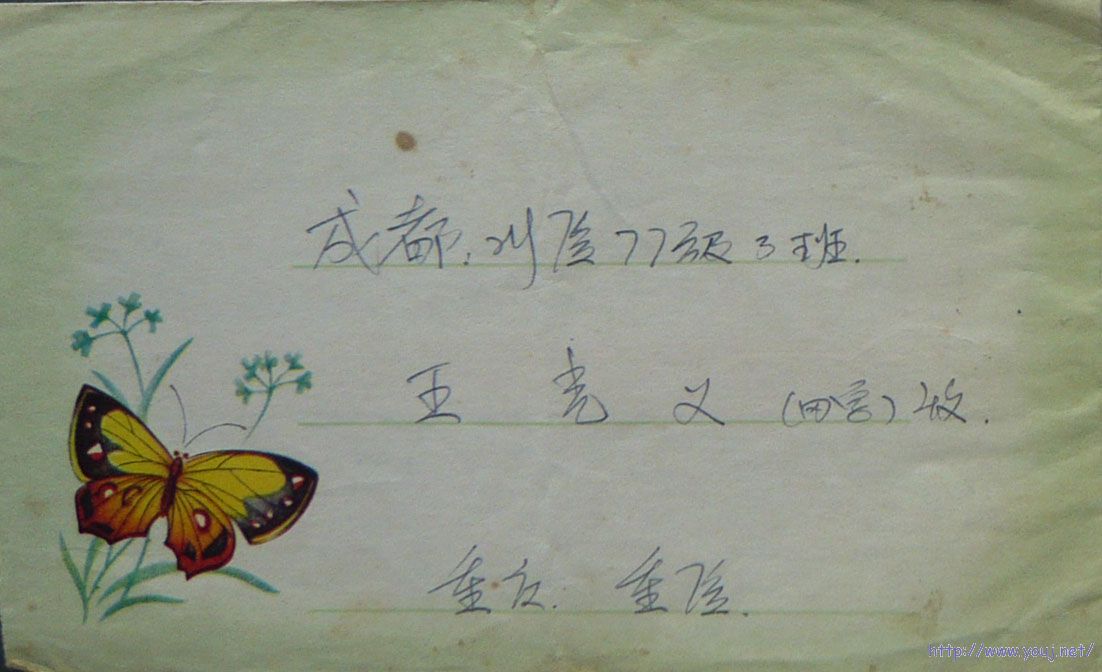 成都.川医77级3班.
王克义(田言)收.
重庆:重医.
http://www.youj.net/